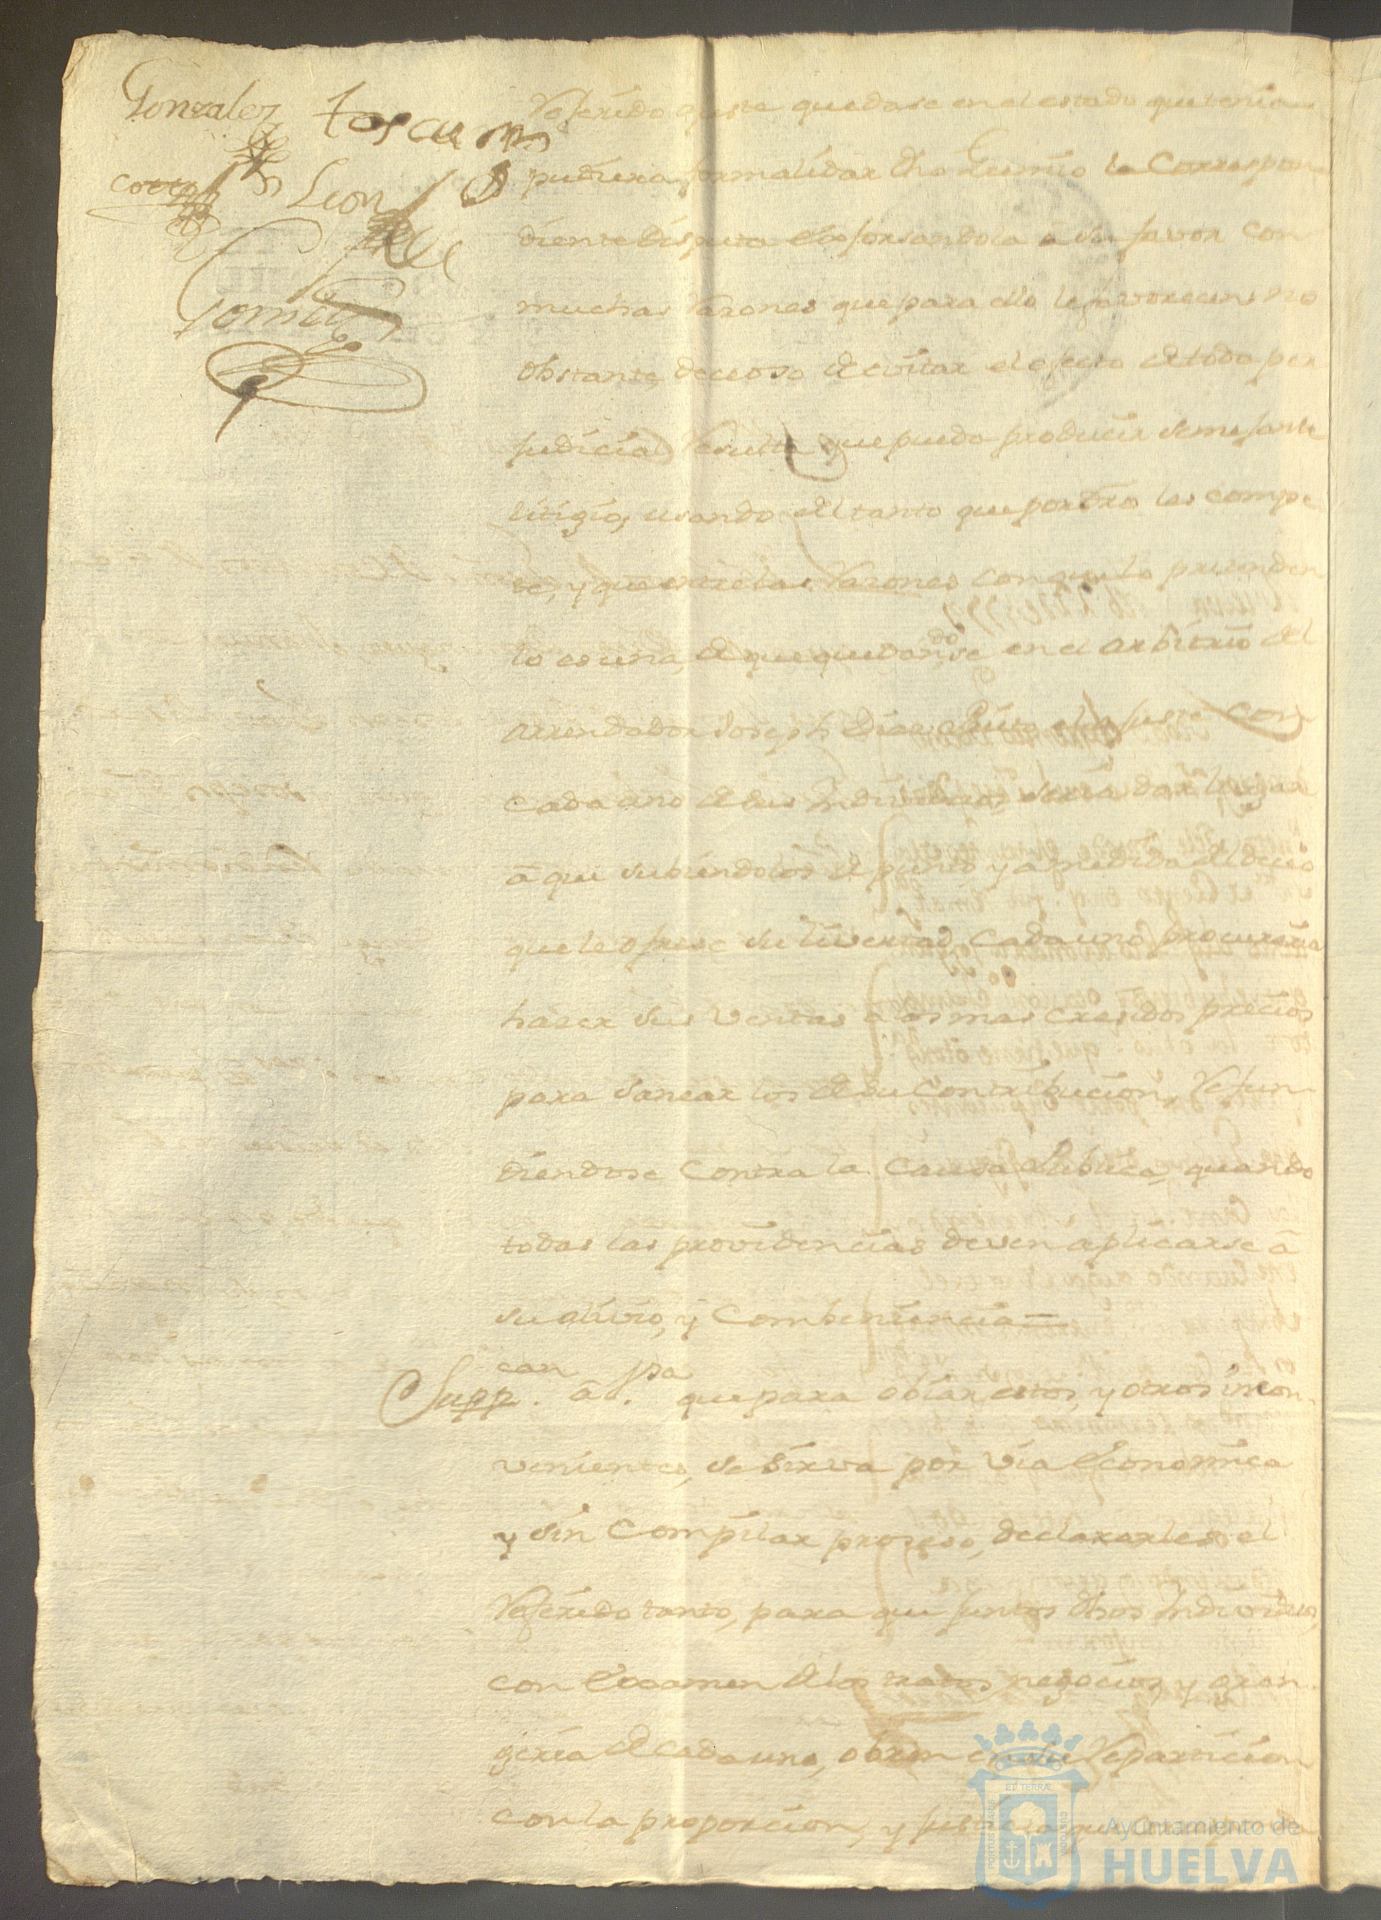 Gonzalez toscano
Cotto Leon
Gomez
Referido ajuste quedase en el estado que tenia
pudiera formalizar dho Gremio la Correspon
diente disputa esforsandola â su favor con
muchas Razones que para ello le favorecen; no
obstante deceoso de evitar el efecto de todo per
judicial Resulta que puedo producir semejante
litigio, usando del tanto que por dro les compe
te, y que entre las Razones con que lo pretenden
lo es una, de que quedandose en el arbitrio del
arrendador Joseph Dias Pinto el ajuste con
cada uno de sus Individuos, seria dar lugar
â que subiendolos de punto y a medida del deceo
que le ofrese su livertad, cada uno procuraria
haser sus ventas a los mas cresidos precios
para sanear los de su Contribucion, Refun
diendose Contra la Causa Publica, quando
todas las providencias deven aplicarse â
su alivio, y Combeniencia =
Suppcan â Vsa. que para obiar estos, y otros incon
venientes, se sirva por via economica
y sin Compilar proseso, declararles el
Referido tanto, para que juntos dhos Individuos,
con examen de los tratos, negocios, y gran
geria de cada uno, obren en su Reparticion
con la proporcion, y justicia que
Ayuntamiento de
HUELVA